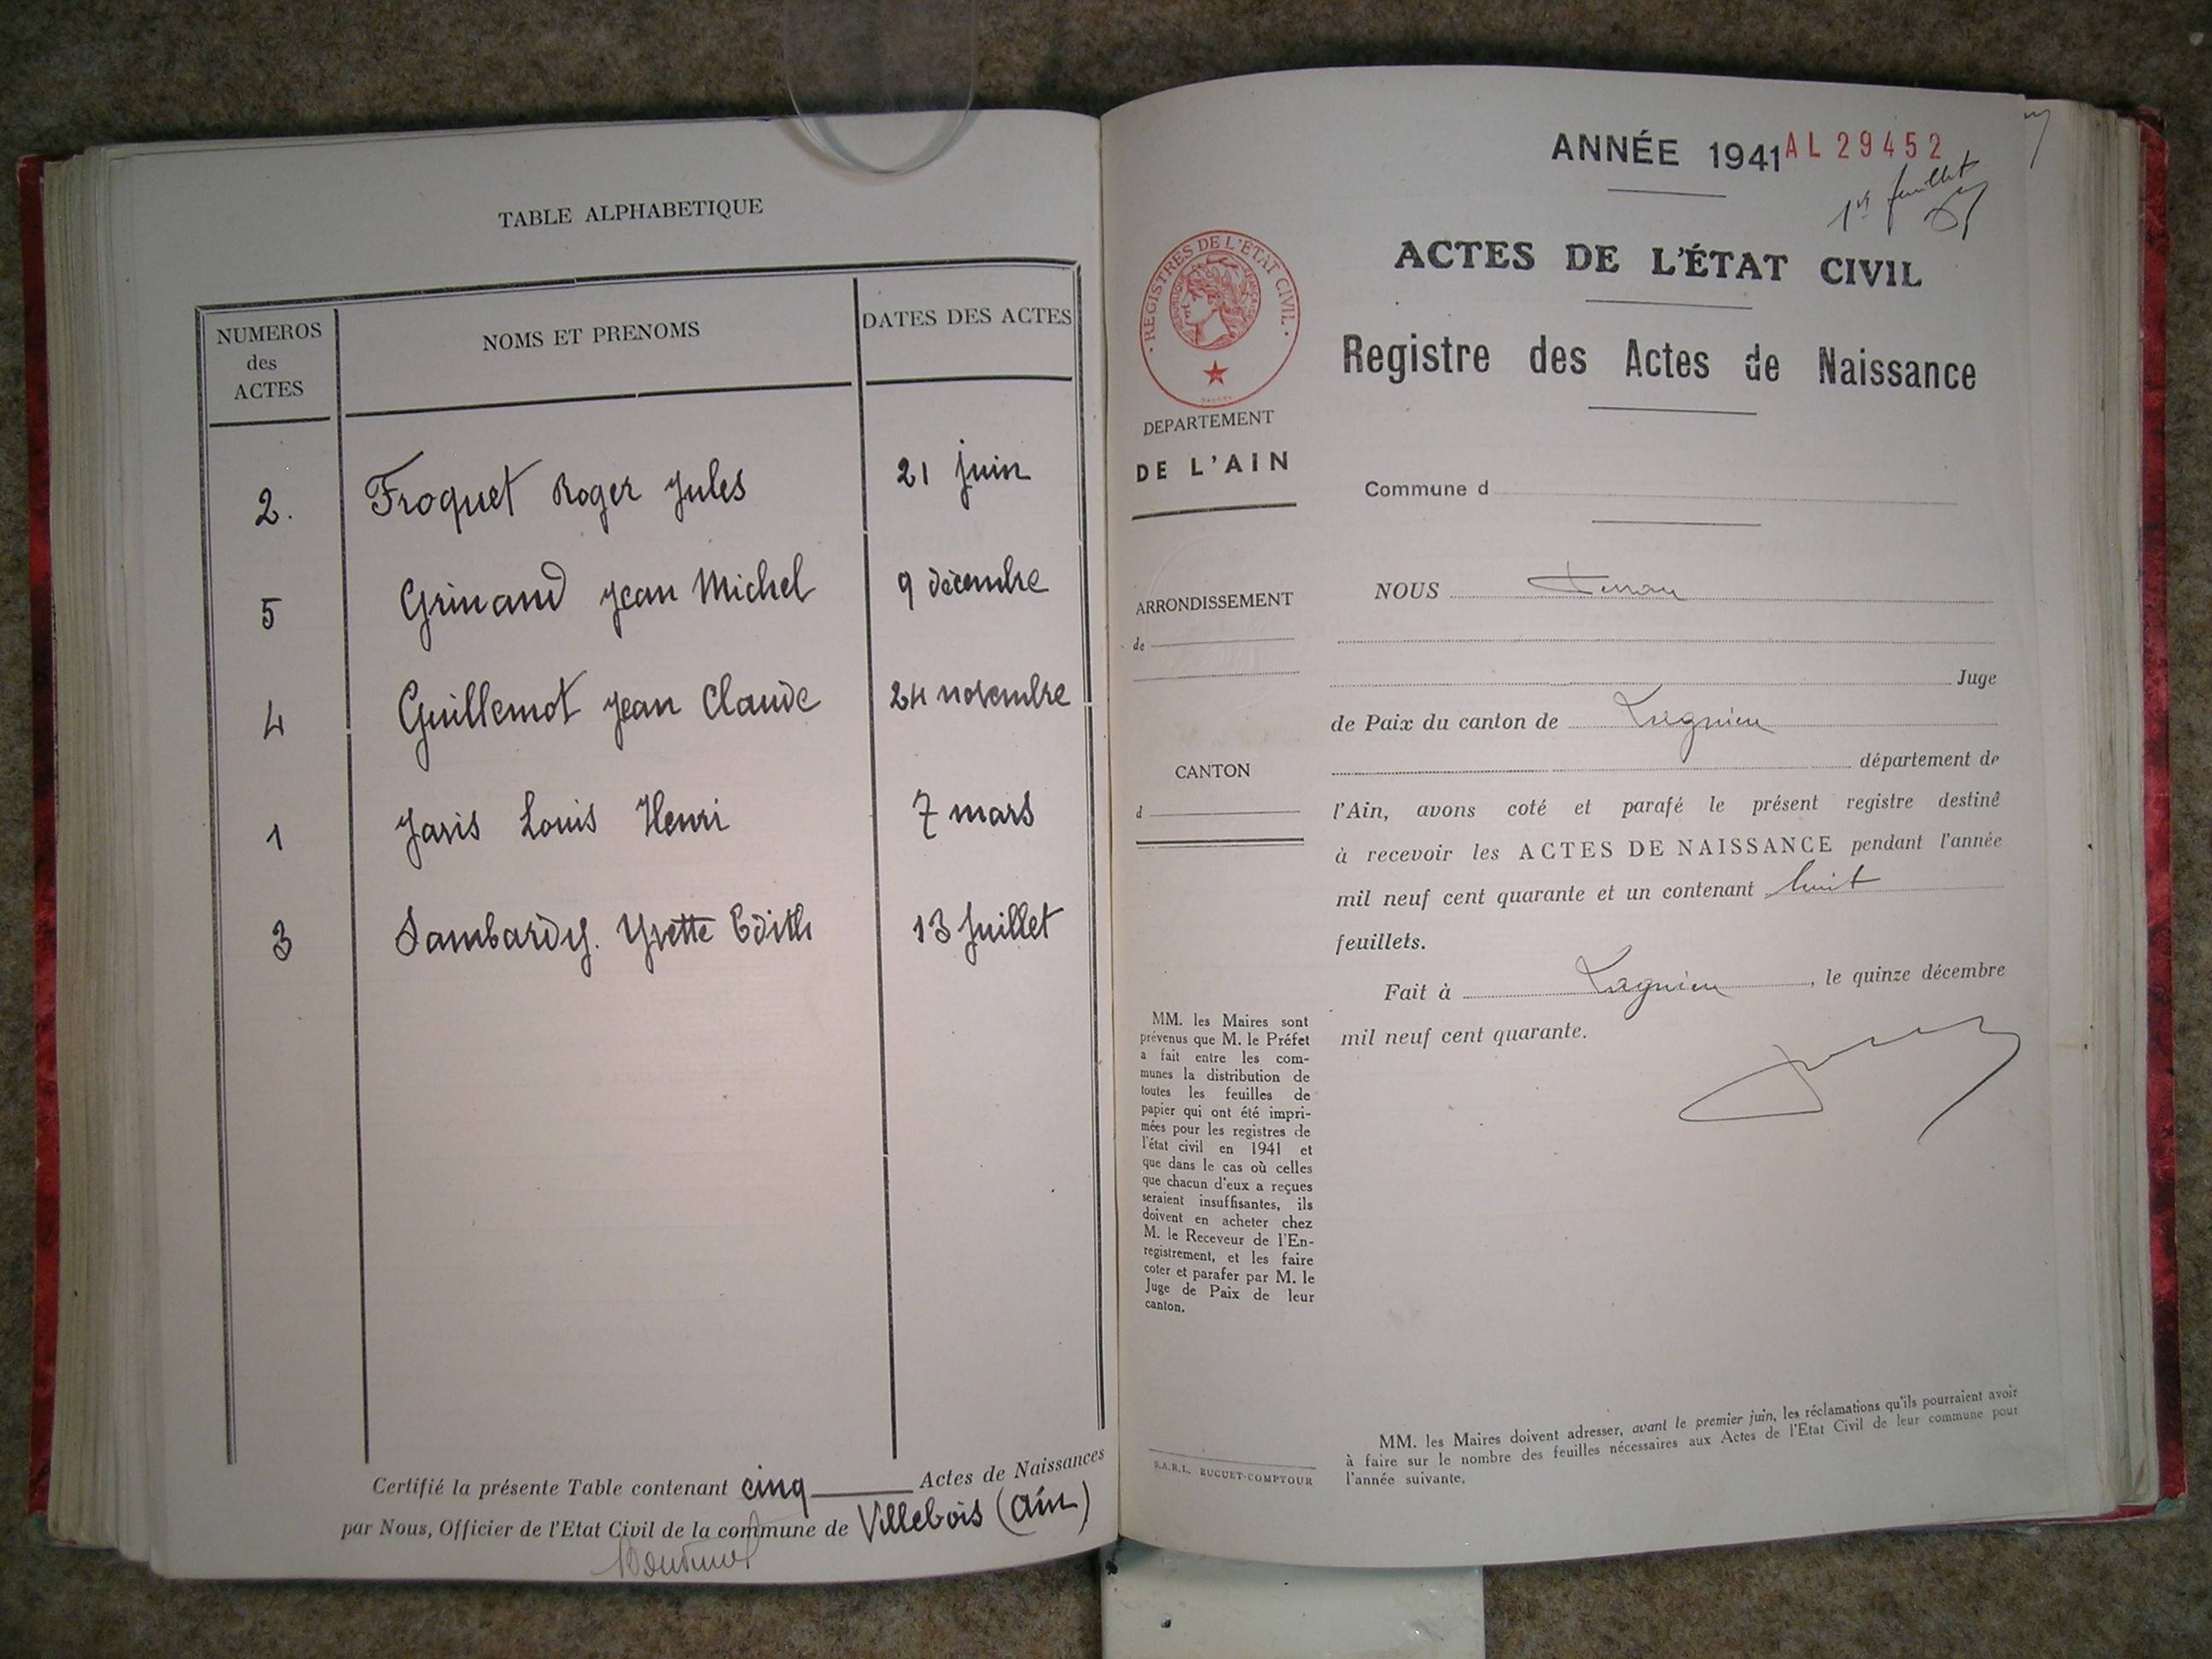 TABLE ALPHABETIQUE
NUMEROS
des
ACTES
NOMS ET PRENOMS
DATES DES ACTES
2. Froquet Roger Jules 21 juin
5 Grinand Jean Michel 9 décembre
4 Guillemot Jean Claude 24 novembre
1 Jaris Louis Henri 7 mars
3 Sambardy. Yvette Edith 13 Juillet
Certifié la présente Table contenant cinq Actes de Naissances
par Nous, Officier de l'Etat Civil de la commune de Villebois (Ain)
ANNÉE 1941 AL 29452
1er feuillet
ACTES DE L'ÉTAT CIVIL
Registre des Actes de Naissance
· REGISTRES DE L'ETAT CIVIL ·
DEPARTEMENT
DE L'AIN
ARRONDISSEMENT
de
CANTON
d
MM. les Maires sont
prévenus que M. le Préfet
a fait entre les com-
munes la distribution de
toutes les feuilles de
papier qui ont été impri-
mées pour les registres de
l'état civil en 1941 et
que dans le cas où celles
que chacun d'eux a reçues
seraient insuffisantes, ils
doivent en acheter chez
M. le Receveur de l'En-
registrement, et les faire
coter et parafer par M. le
Juge de Paix de leur
canton.
S.A.R.L. BUGUET-COMPTOUR
Commune d
NOUS
Juge
de Paix du canton de Lagnieu
département de
l'Ain, avons coté et parafé le présent registre destiné
à recevoir les ACTES DE NAISSANCE pendant l'année
mil neuf cent quarante et un contenant huit
feuillets.
Fait à Lagnieu, le quinze décembre
mil neuf cent quarante.
MM. les Maires doivent adresser, avant le premier juin, les réclamations qu'ils pourraient avoir
à faire sur le nombre des feuilles nécessaires aux Actes de l'Etat Civil de leur commune pour
l'année suivante.